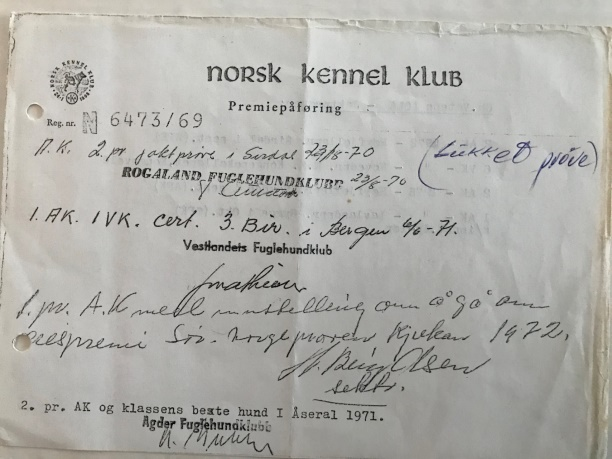 NORSK KENNEL KLUB
NORSK KENNEL KLUB
Premiepåføring
Reg. nr. N 6473/69
A.K. 2. pr jaktprøve i Sirdal 23/8-70 (Lukket prøve)
ROGALAND FUGLEHUNDKLUBB 23/8-70
1. AK. 1VK. cert. 3. Bir. i Bergen 6/6-71.
Vestlandets Fuglehundklub
1. pr. A.K med innstilling om å gå om
ærespremi Sør-Norgeprøven Rjukan 1972.
Olsen
sekr.
2. pr. AK og klassens beste hund I Åseral 1971.
Agder Fuglehundklubb